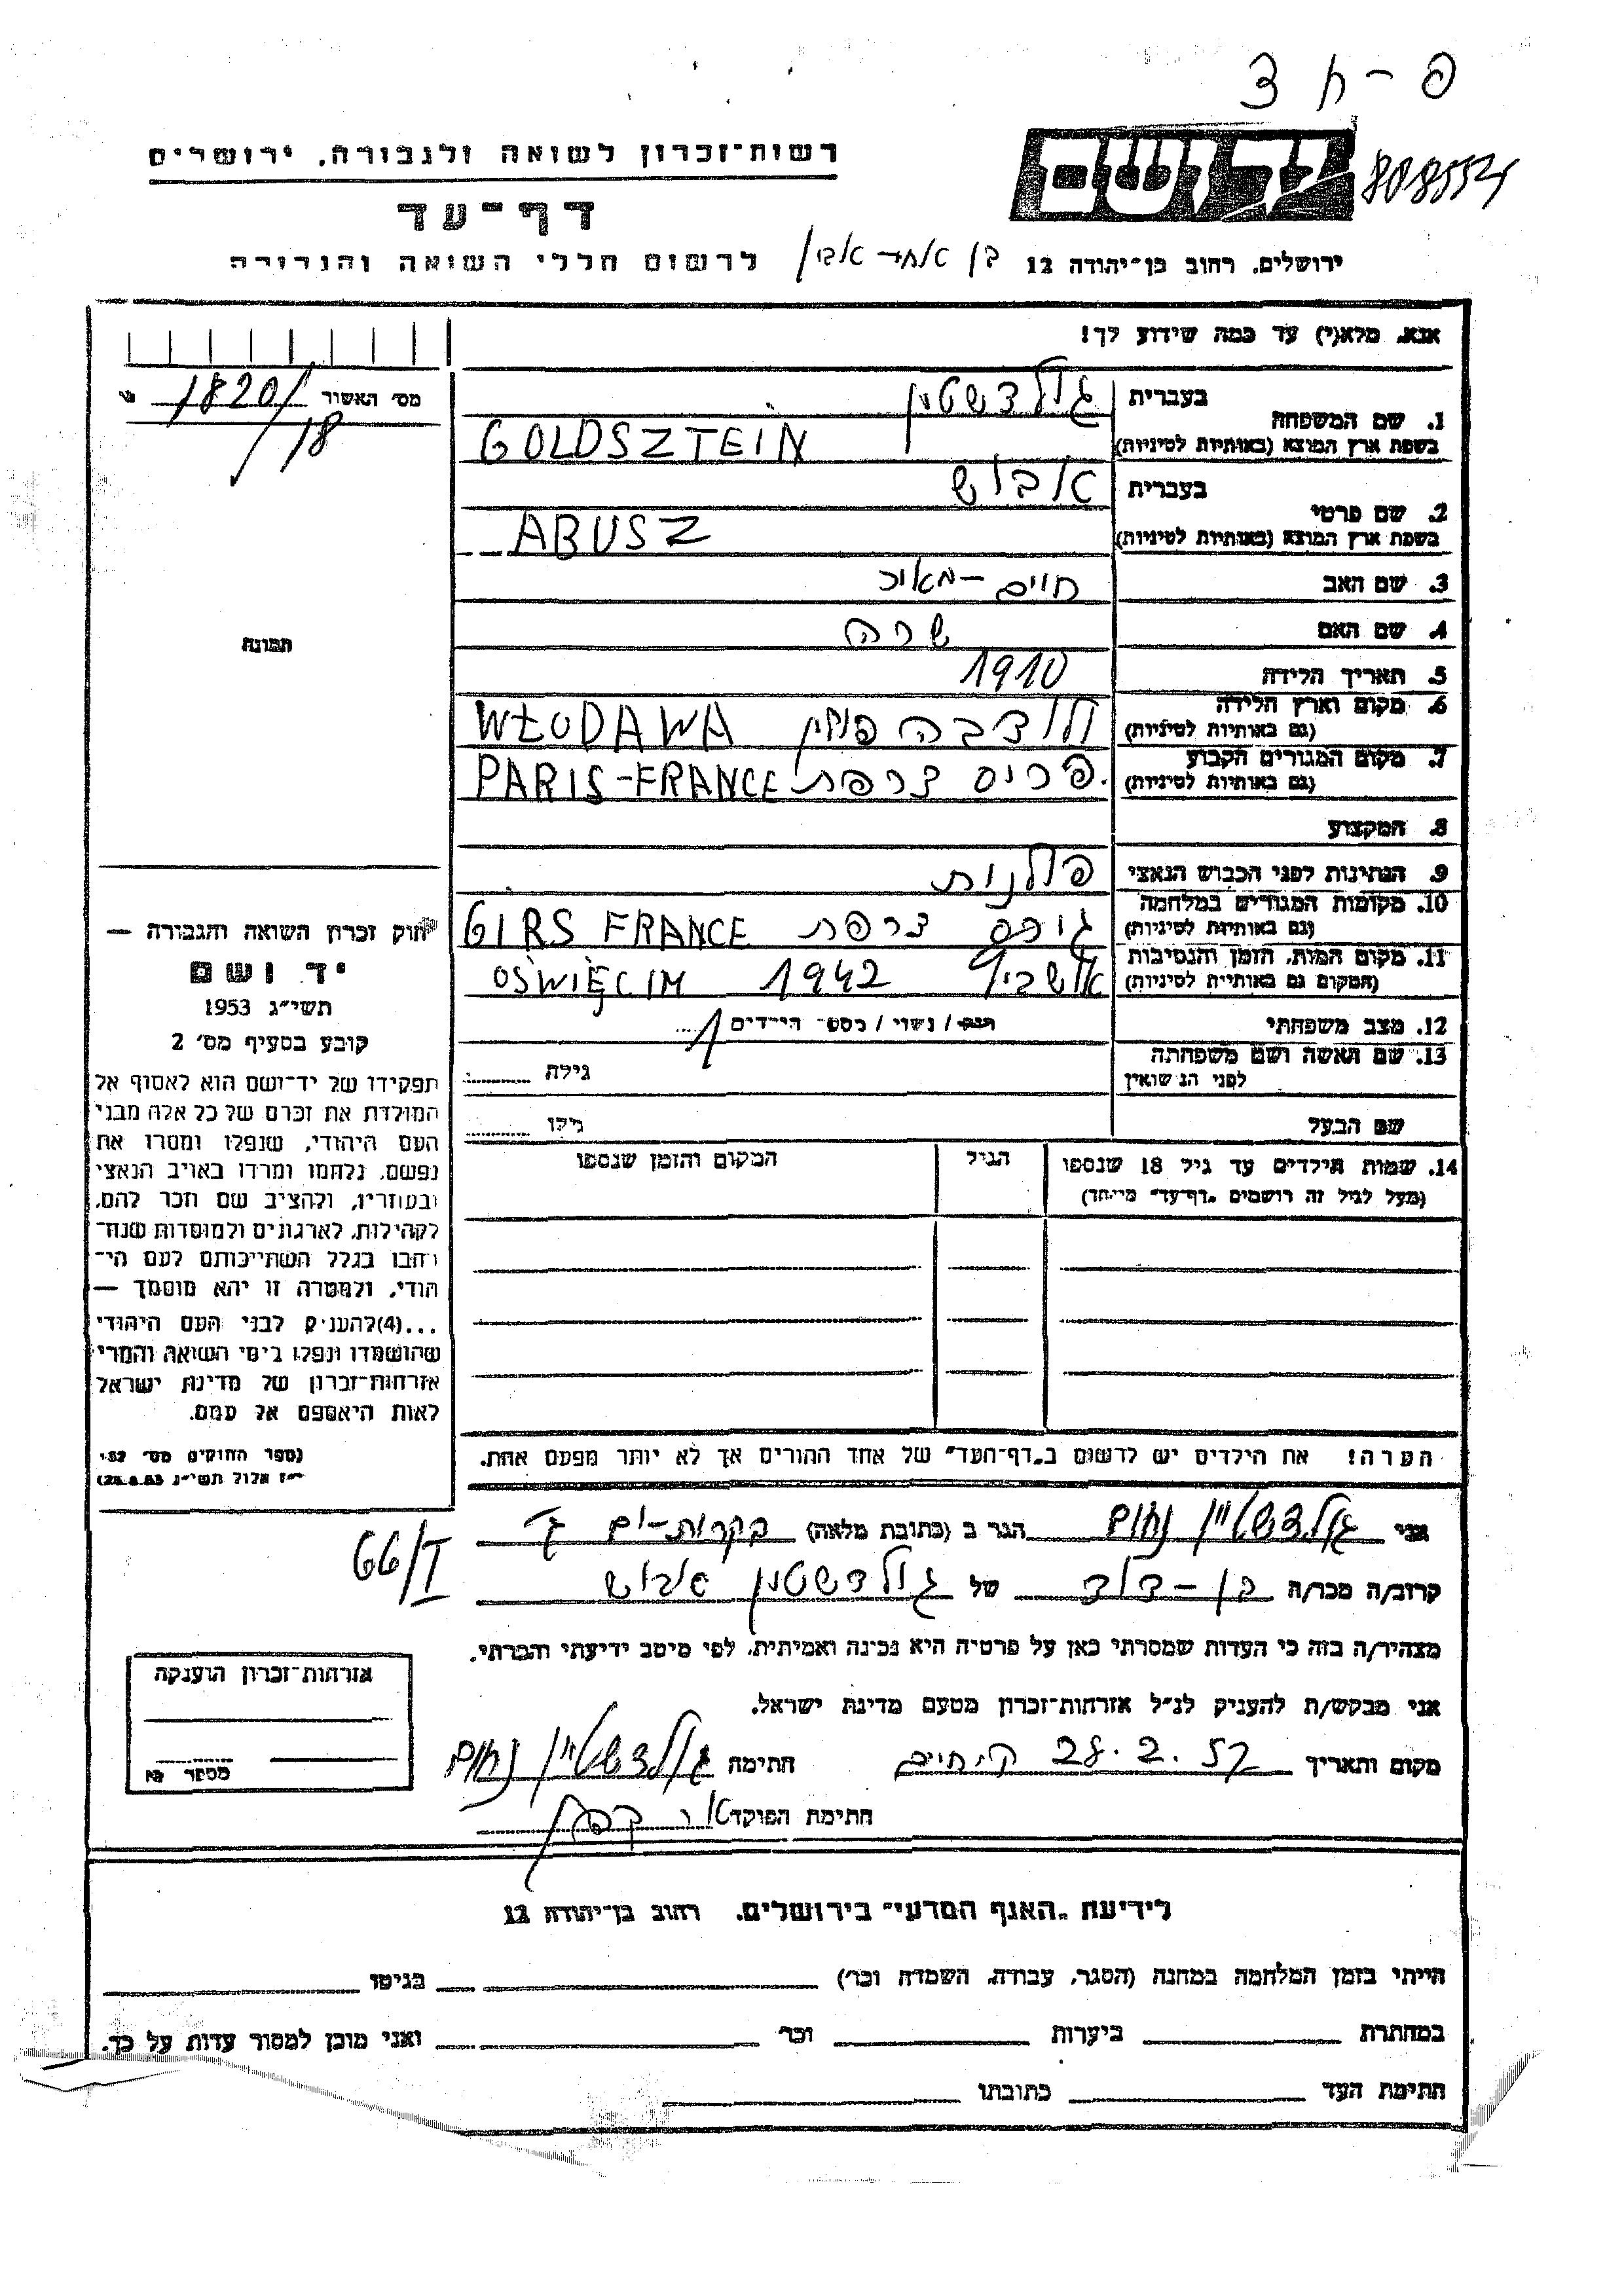 פ - ח צ
רשות־זכרון לשואה ולגבורה, ירושלים
יד ושם
808554
דף־עד
ירושלים, רחוב בן־יהודה 12
לרשום חללי השואה והגבורה
אנא, מלא(י) עד כמה שידוע לך!
מס׳ האשור 1820/18
1. שם המשפחה בעברית גולדשטיין
בשפת ארץ המוצא (באותיות לטיניות) GOLDSZTEIN
2. שם פרטי בעברית אבוש
בשפת ארץ המוצא (באותיות לטיניות) ABUSZ
3. שם האב חיים - מאיר
4. שם האם שרה
5. תאריך הלידה 1910
6. מקום וארץ הלידה (גם באותיות לטיניות) ולודבה פולין WŁODAWA
7. מקום המגורים הקבוע (גם באותיות לטיניות) פריס צרפת PARIS-FRANCE
8. המקצוע
9. הנתינות לפני הכבוש הנאצי פולנית
10. מקומות המגורים במלחמה (גם באותיות לטיניות) גירס צרפת GIRS FRANCE
11. מקום המות, הזמן והנסיבות (המקום גם באותיות לטיניות) 1942 OŚWIĘCIM
12. מצב משפחתי רווק / נשוי / מספר הילדים 1
13. שם האשה ושם משפחתה לפני הנשואין גילה
שם הבעל גילו
14. שמות הילדים עד גיל 18 שנספו הגיל המקום והזמן שנספו
(מעל לגיל זה רושמים „דף־עד״ מיוחד)
הערה! את הילדים יש לרשום ב„דף־העד״ של אחד ההורים אך לא יותר מפעם אחת.
תמונה
חוק זכרון השואה והגבורה —
יד ושם
תשי״ג 1953
קובע בסעיף מס׳ 2
תפקידו של יד־ושם הוא לאסוף אל
המולדת את זכרם של כל אלה מבני
העם היהודי, שנפלו ומסרו את
נפשם, נלחמו ומרדו באויב הנאצי
ובעוזריו, ולהציב שם וזכר להם,
לקהילות, לארגונים ולמוסדות שנח־
רבו בגלל השתייכותם לעם הי־
הודי, ולמטרה זו יהא מוסמך —
...(4)להעניק לבני העם היהודי
שהושמדו ונפלו בימי השואה והמרי
אזרחות־זכרון של מדינת ישראל
לאות היאספם אל עמם.
(ספר החוקים מס׳ 132
י״ז אלול תשי״ג 28.8.53)
אני גולדשטיין נחום הגר ב (כתובת מלאה) בקרית-ים ג׳
66/I
קרוב/ה מכר/ה בן - דוד של גולדשטיין אבוש
מצהיר/ה בזה כי העדות שמסרתי כאן על פרטיה היא נכונה ואמיתית, לפי מיטב ידיעתי והכרתי.
אני מבקש/ת להעניק לנ״ל אזרחות־זכרון מטעם מדינת ישראל.
מקום והתאריך 28.2.57 ק. חיים חתימה גולדשטיין נחום
חתימת הפוקד
אזרחות־זכרון הוענקה
מספר
לידיעת „האגף המדעי״ בירושלים, רחוב בן־יהודה 12
הייתי בזמן המלחמה במחנה (הסגר, עבודה, השמדה וכר׳) בגיטו
במחתרת ביערות וכר׳ ואני מוכן למסור עדות על כך.
חתימת העד כתובתו